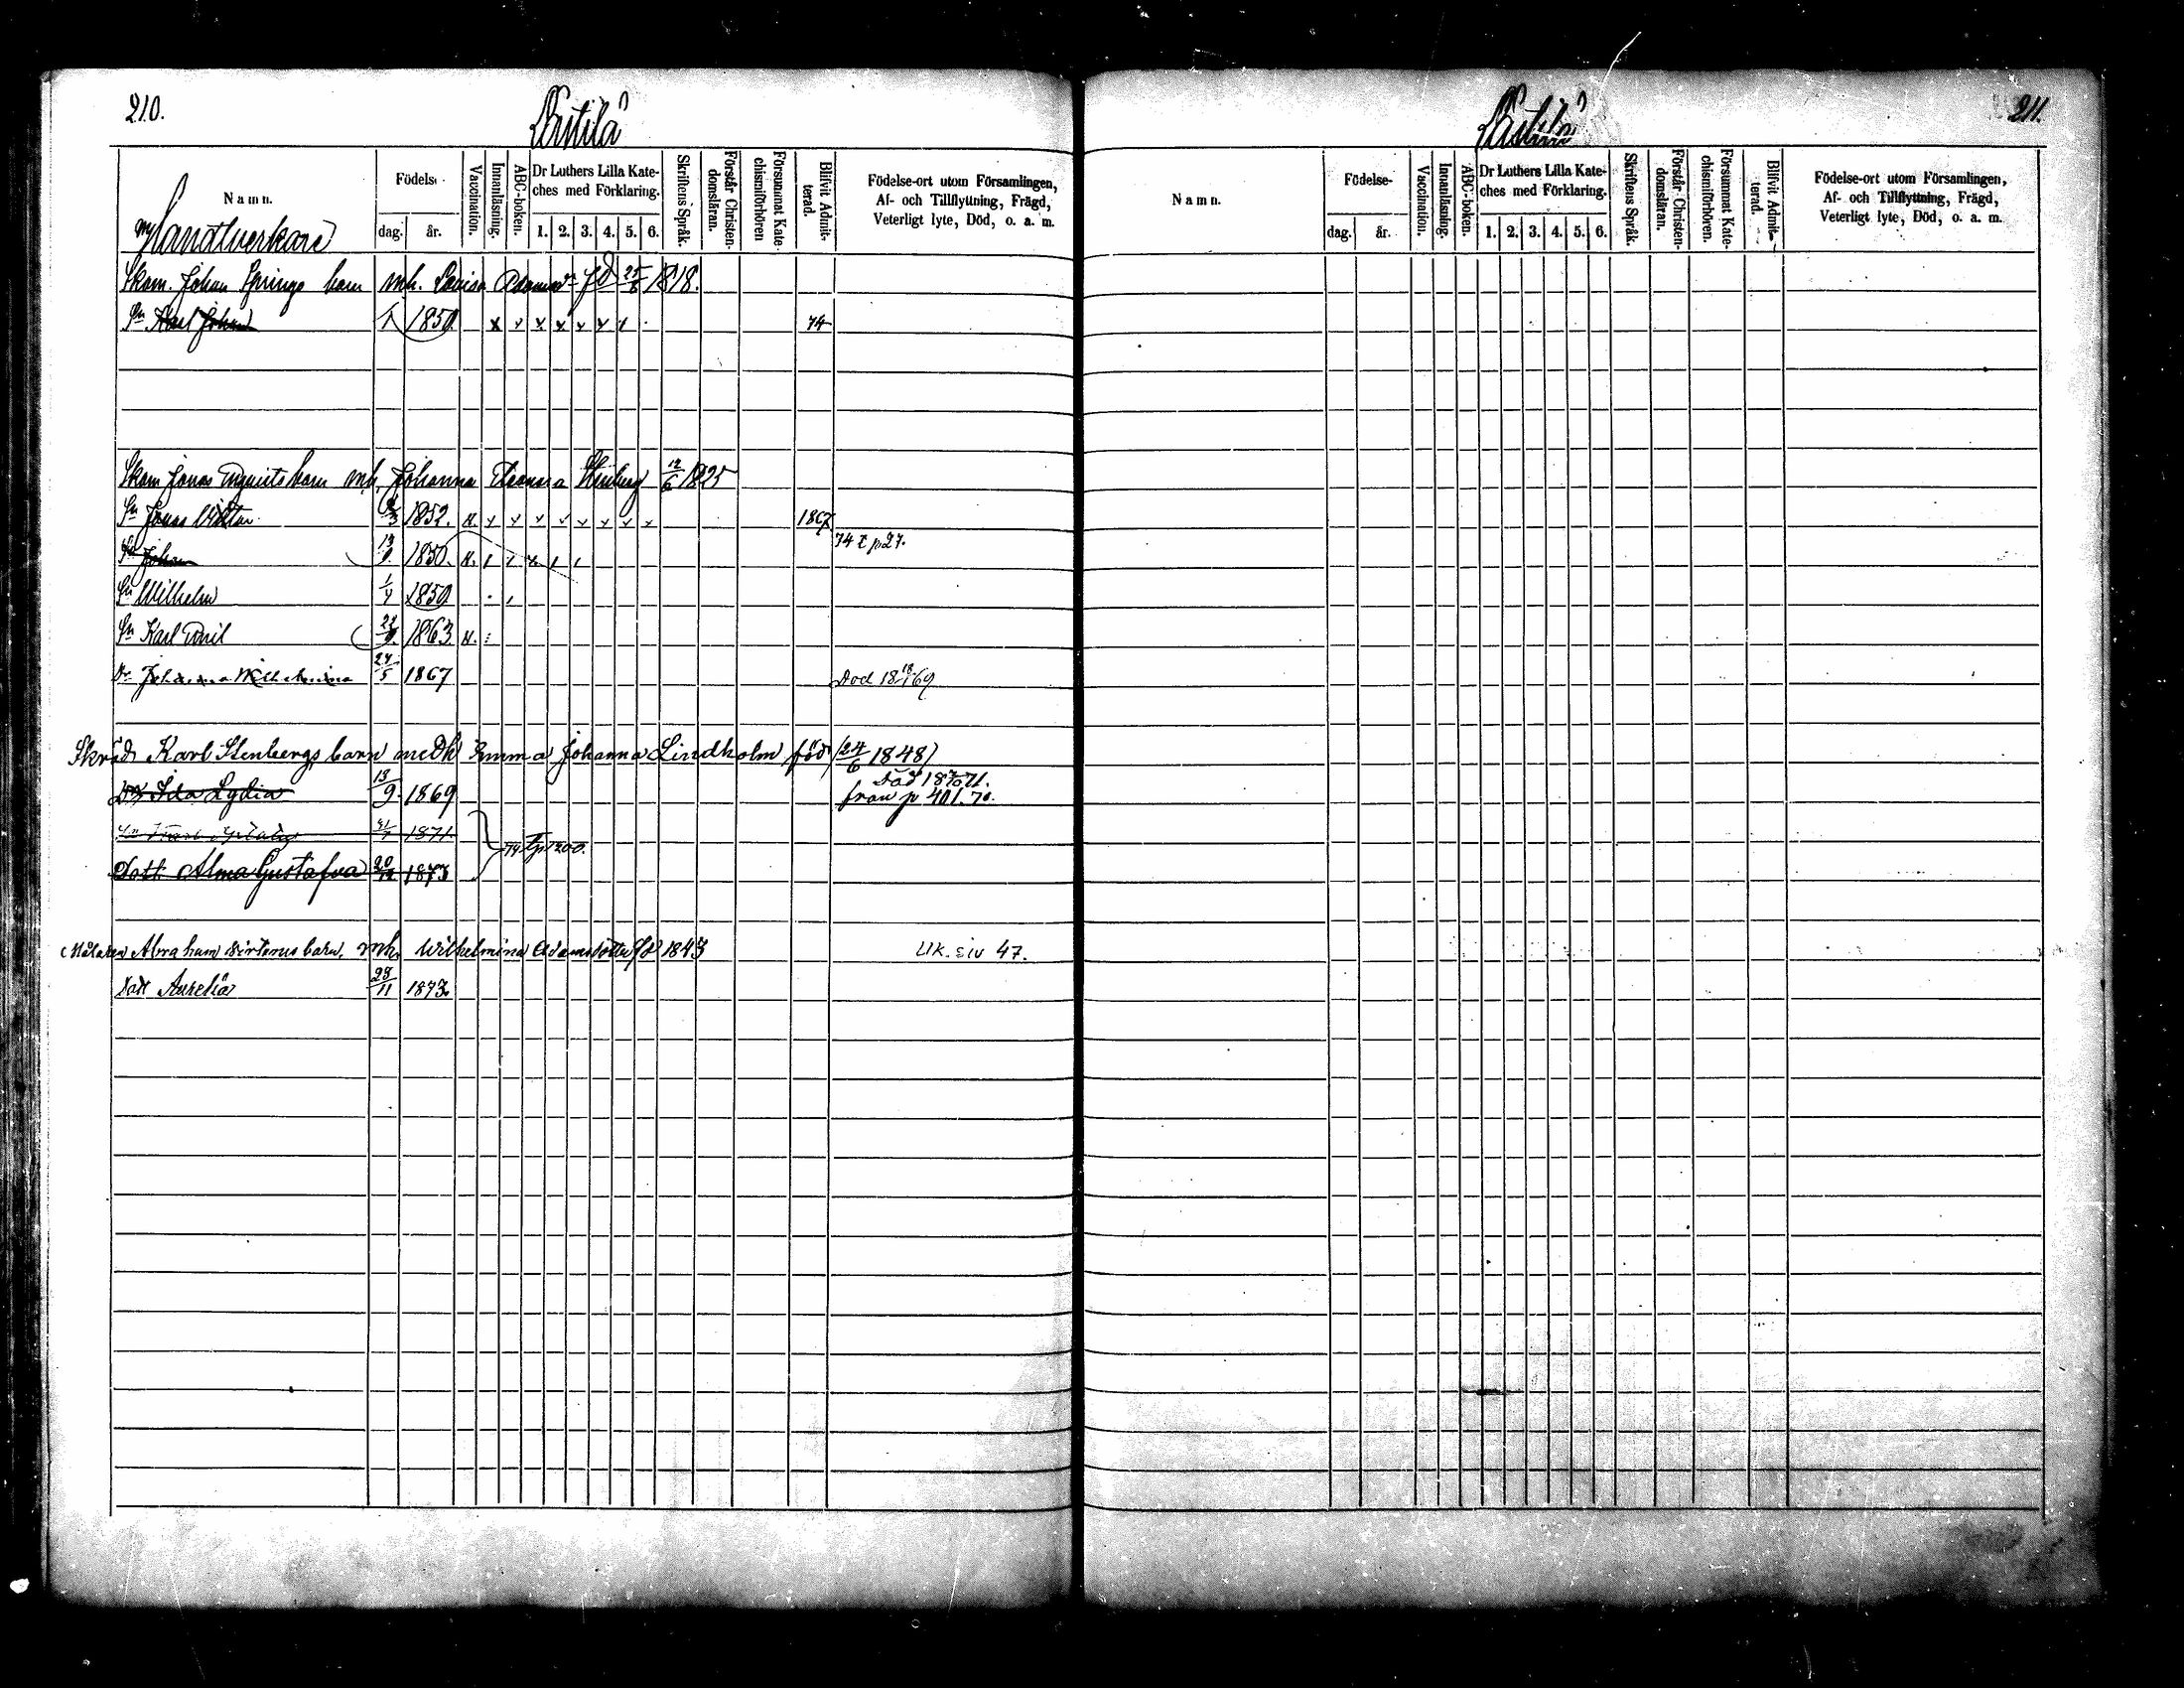 210.
Namn.
Handtverkare
Födelse-
dag. år.
Vaccination.
Innanläsning.
ABC-boken.
Dr Luthers Lilla Kate-
ches med Förklaring.
1. 2. 3. 4. 5. 6.
Skriftens Språk.
Förstår Christen-
domsläran.
Försummat Kate-
chismiförhören
Blifvit Admit-
terad.
Födelse-ort utom Församlingen,
Af- och Tillflyttning, Frägd,
Veterligt lyte, Död, o. a. m.
Skom. Johan Springs barn mh. Lovisa fd 25/6 1818.
Sn Karl Johan 1850 74
Skom Jonas barn mh. Johanna Eleonora Stenberg 12/6 1825
Sn Jonas Viktor 1852. 1867
74 t p 27.
Sn Johan 1850.
Sn Wilhelm 1/4 1850
Sn Karl Emil 1863
Dr Johanna Wilhelmina 24/5 1867 Död 18 18/1 69
Skräd. Karl Stenbergs barn medh Emma Johanna Lindholm föd (24/6 1848)
Död 71.
Dr Ida Lydia 13/9 1869 från p 401. 70.
Sn Karl 1871.
74 Tp 200.
Dott. Alma Gustafva 20/12 1873
Målaren Abraham barn, mh. Wilhelmina Adamsdotter fd 1843 Uk. siv 47.
Dott Aurelia 28/11 1873.
211.
Namn.
Födelse-
dag. år.
Vaccination.
Innanläsning.
ABC-boken.
Dr Luthers Lilla Kate-
ches med Förklaring.
1. 2. 3. 4. 5. 6.
Skriftens Språk.
Förstår Christen-
domsläran.
Försummat Kate-
chismiförhören.
Blifvit Admit-
terad.
Födelse-ort utom Församlingen,
Af- och Tillflyttning, Frägd,
Veterligt lyte, Död, o. a. m.